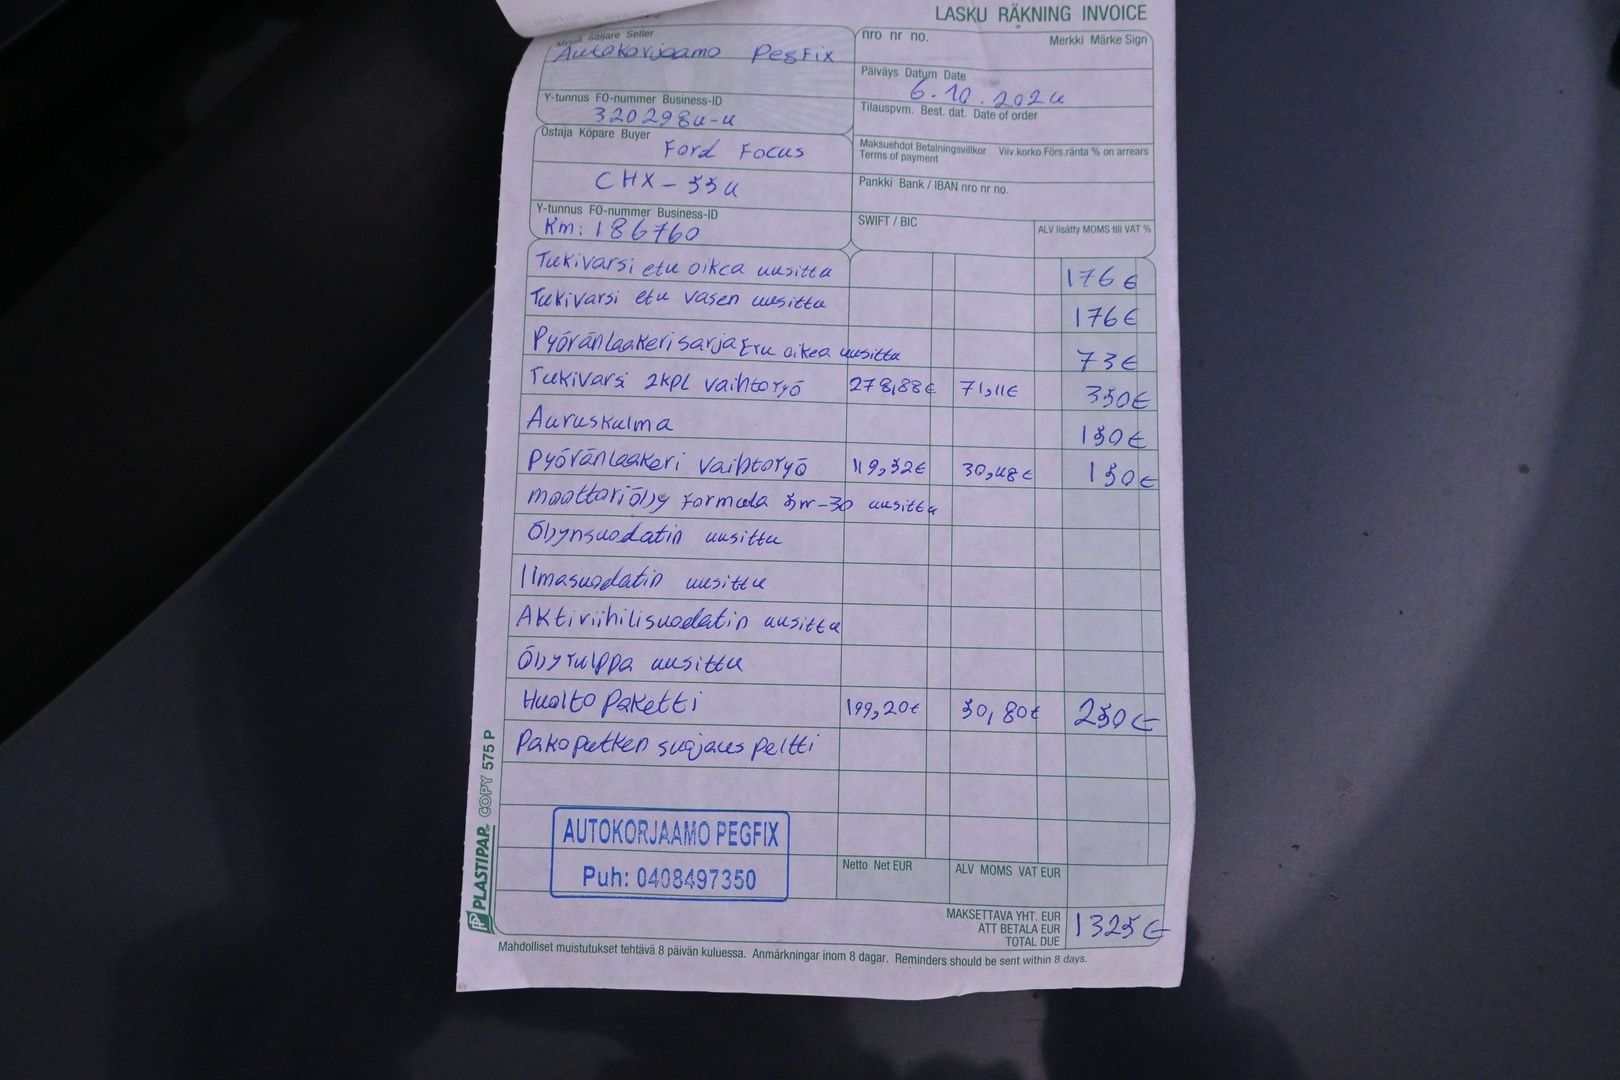 LASKU RÄKNING INVOICE
Myyjä Säljare Seller
Autokorjaamo PegFix
nro nr no.
Merkki Märke Sign
Päiväys Datum Date
6.10.2024
Y-tunnus FO-nummer Business-ID
3202984-4
Tilauspvm. Best. dat. Date of order
Ostaja Köpare Buyer
Ford Focus
Maksuehdot Betalningsvillkor Viiv.korko Förs.ränta % on arrears
Terms of payment
CHX-554
Pankki Bank / IBAN nro nr no.
Y-tunnus FO-nummer Business-ID
Km: 186760
SWIFT / BIC
ALV lisätty MOMS till VAT %
Tukivarsi etu oikea uusittu 176€
Tukivarsi etu vasen uusittu 176€
Pyöränlaakerisarja Etu oikea uusittu 73€
Tukivarsi 2kpl vaihtotyö 278,88€ 71,11€ 350€
Auruskulma 150€
Pyöränlaakeri vaihtotyö 119,52€ 30,48€ 150€
moottoriöljy Formula 5w-30 uusittu
Öljynsuodatin uusittu
Ilmasuodatin uusittu
Aktiviihilisuodatin uusittu
Öljytulppa uusittu
Hualto paketti 199,20€ 50,80€ 250€
Pakoputken suojaus peltti
AUTOKORJAAMO PEGFIX
Puh: 0408497350
Netto Net EUR
ALV MOMS VAT EUR
MAKSETTAVA YHT. EUR
ATT BETALA EUR
TOTAL DUE
1325€
Mahdolliset muistutukset tehtävä 8 päivän kuluessa. Anmärkningar inom 8 dagar. Reminders should be sent within 8 days.
PLASTIPAP COPY 575 P